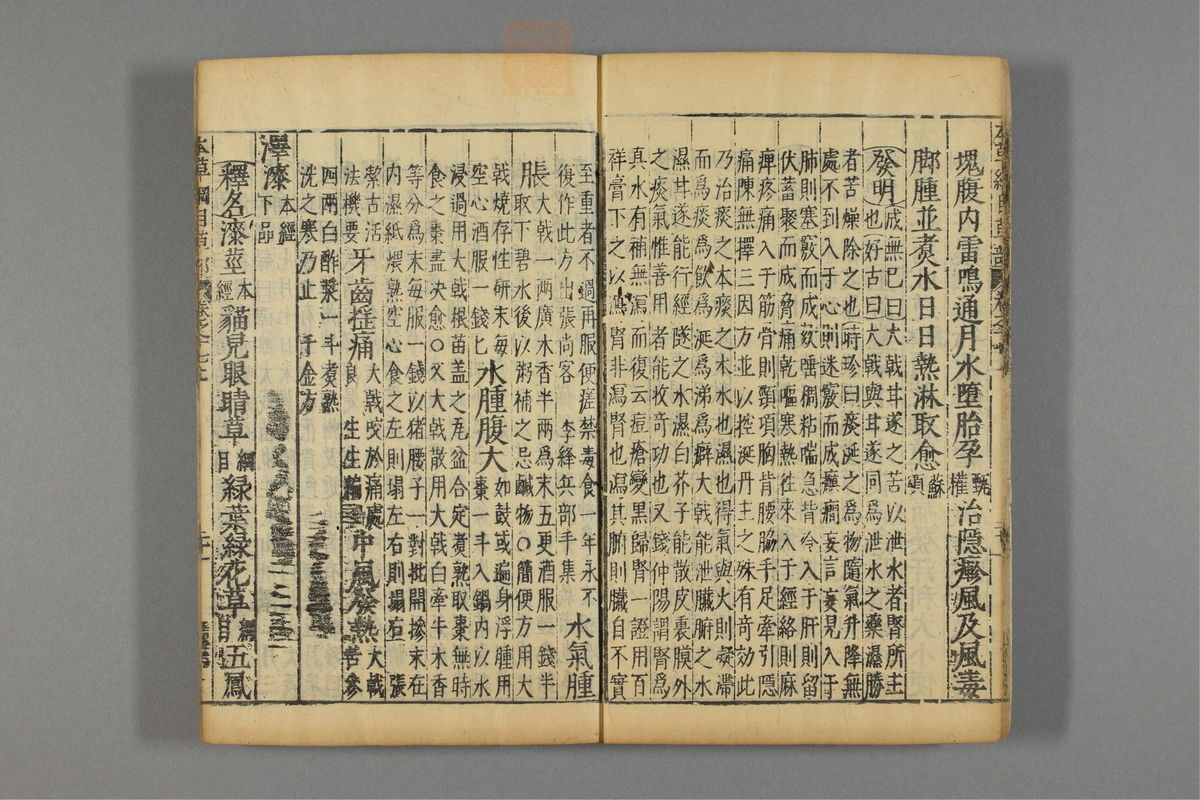 塊腹內雷鳴通月水墮胎孕甄權治隱疹風及風毒
脚腫並煮水日日熱淋取愈蘇頌
發明成無已曰大戟甘遂之苦以泄水者腎所主
也好古曰大戟與甘遂同爲泄水之藥濕勝
者苦燥除之也時珍曰痰涎之爲物隨氣升降無
處不到入于心則迷竅而成癲癇妄言妄見入于
肺則塞竅而成欬唾稠粘喘急背冷入于肝則留
伏蓄聚而成脅痛乾嘔寒熱徃來入于經絡則麻
痺疼痛入于筋骨則頸項胸背腰脇手足牽引隱
痛陳無擇三因方並以控涎丹主之殊有奇効此
乃治痰之本痰之本水也濕也得氣與火則凝滯
而爲痰爲飲爲涎爲涕爲癖大戟能泄臟腑之水
濕甘遂能行經隧之水濕白芥子能散皮裏膜外
之痰氣惟善用者能收奇功也又錢仲陽謂腎爲
真水有補無瀉而復云痘瘡變黑歸腎一證用百
祥膏下之以瀉腎非瀉腎也瀉其腑則臟自不實
至重者不過再服便瘥禁毒食一年永不
復作此方出張尚客 李絳兵部手集 水氣腫
脹大戟一兩廣木香半兩爲末五更酒服一錢半
取下碧水後以粥補之忌鹹物○簡便方用大
戟燒存性研末每空心酒服一錢匕 水腫腹大如鼓或遍身浮腫用
棗一斗入鍋內以水
浸過用大戟根苗盖之瓦盆合定煮熟取棗無時
食之棗盡決愈○又大戟散用大戟白牽牛木香
等分爲末每服一錢以猪腰子一對批開摻末在
內濕紙煨熟空心食之左則塌左右則塌右 張
潔古活法機要 牙齒揺痛大戟咬於痛處良 生生編 中風發熱大戟苦參
四兩白酢漿一斗煮熟
洗之寒乃止 千金方
澤漆本經下品
釋名漆莖本經貓兒眼睛草綱目綠葉綠花草綱目五鳳